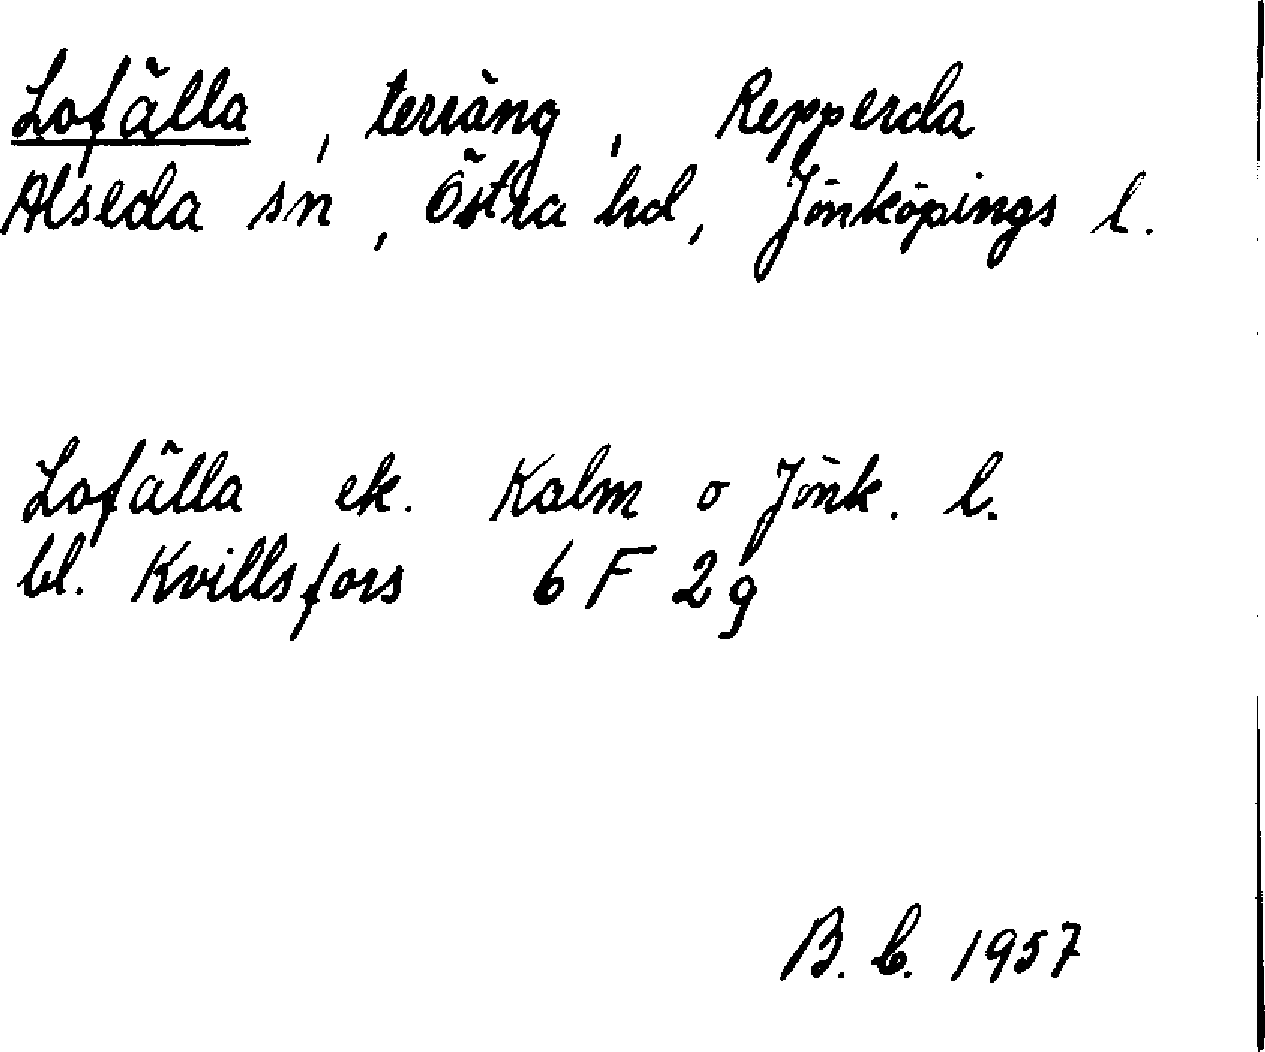 Lofälla, terräng, Repperda
Alseda sn, Östra hd, Jönköpings l.
Lofälla ek. Kalm o Jönk. l.
bl. Kvillsfors 6 F 2 g
B. C. 1957